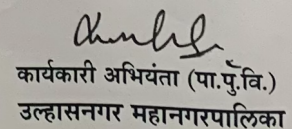 कार्यकारी अभियंता (पा.पुॅ.वि.)
उल्हासनगर महानगरपालिका